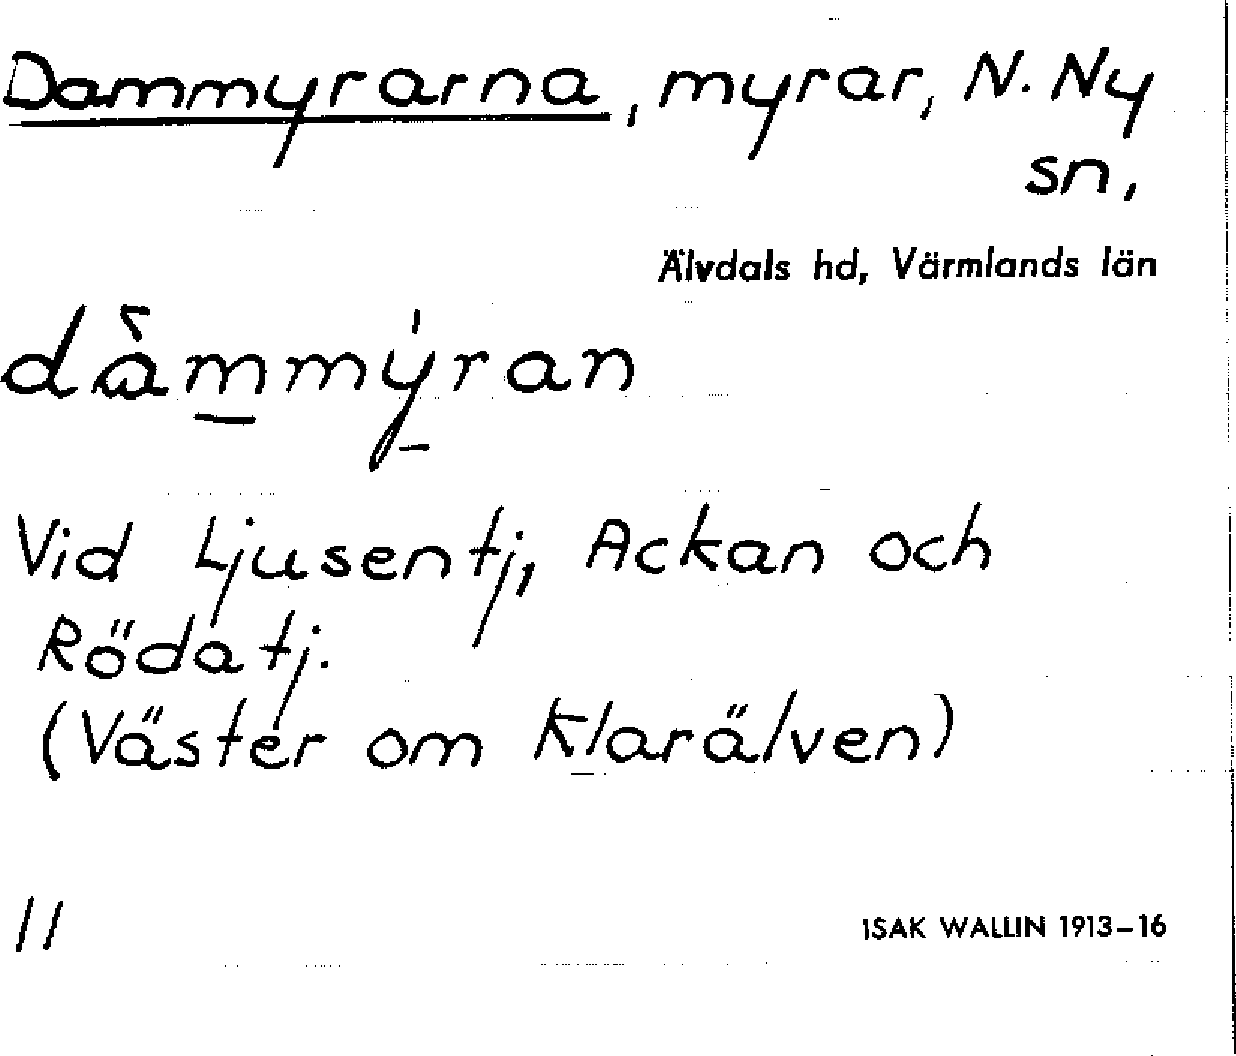 Dammyrarna, myrar, N. Ny
sn,
Älvdals hd, Värmlands län
dàmmýran
Vid Ljusentj, Ackan och
Röda tj.
(Väster om Klarälven)
11
ISAK WALLIN 1913–16